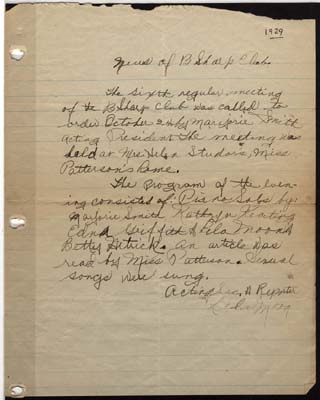 1929
News of B Sharp Club
The sixth regular meeting
of the B Sharp Club was called to
order October 24 by Marjorie Smith
acting President. The meeting was
held at Mrs. Helen Studor's, Miss
Patterson's home.
The program of the even-
ing consisted of: Piano Solos by:
Marjorie Smith Kathryn Keating
Edna Griffith Lela Moon
Betty. An article was
read by Miss Patterson. Several
songs were sung.
Acting Sec. & Reporter
Lela Moon